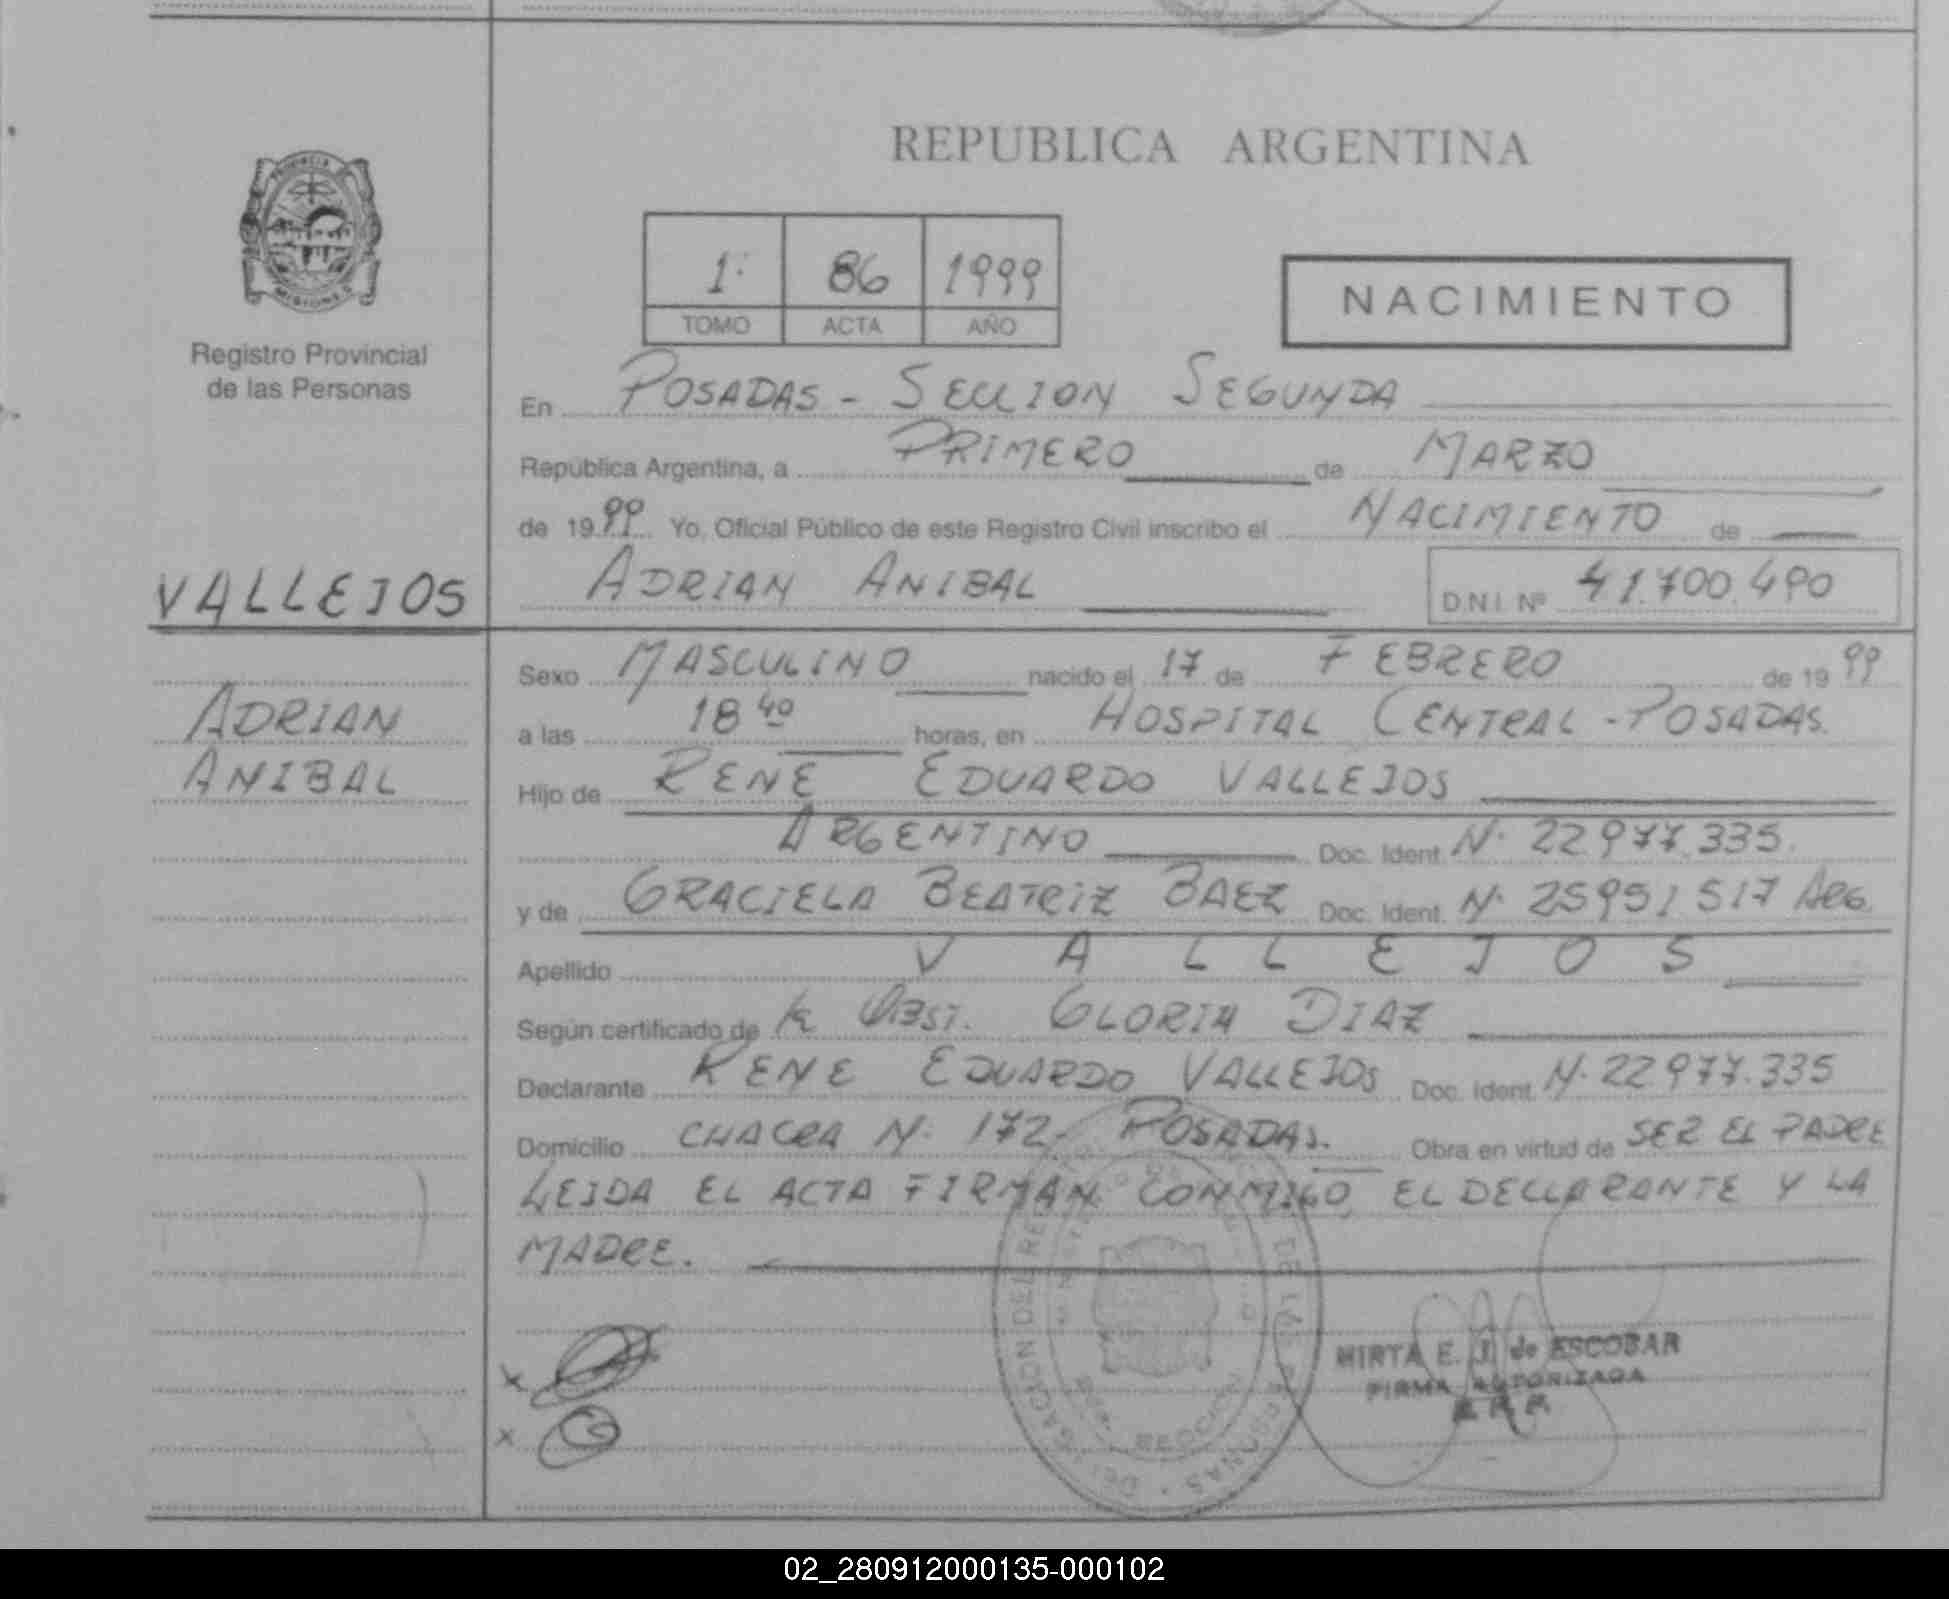 REPUBLICA ARGENTINA
PROVINCIA
MISIONES
Registro Provincial
de las Personas
1º 86 1999
TOMO ACTA AÑO
NACIMIENTO
En POSADAS - SECCION SEGUNDA
República Argentina, a PRIMERO de MARZO
de 1999 Yo, Oficial Público de este Registro Civil inscribo el NACIMIENTO de
VALLEJOS
ADRIAN ANIBAL
D.N.I. Nº 41.700.490
Sexo MASCULINO nacido el 17 de FEBRERO de 1999
ADRIAN
ANIBAL
a las 18 40 horas, en HOSPITAL CENTRAL - POSADAS.
Hijo de RENE EDUARDO VALLEJOS
ARGENTINO Doc. Ident. N· 22977.335.
y de GRACIELA BEATRIZ BAEZ Doc. Ident. N· 25951517 ARG.
Apellido VALLEJOS
Según certificado de la OBST. GLORIA DIAZ
Declarante RENE EDUARDO VALLEJOS Doc. Ident. N· 22977.335
Domicilio CHACRA N· 172- POSADAS. Obra en virtud de SER EL PADRE
LEIDA EL ACTA FIRMAN CONMIGO EL DECLARANTE Y LA
MADRE.
x
x
MIRTA E. J. de ESCOBAR
FIRMA AUTORIZADA
02_280912000135-000102